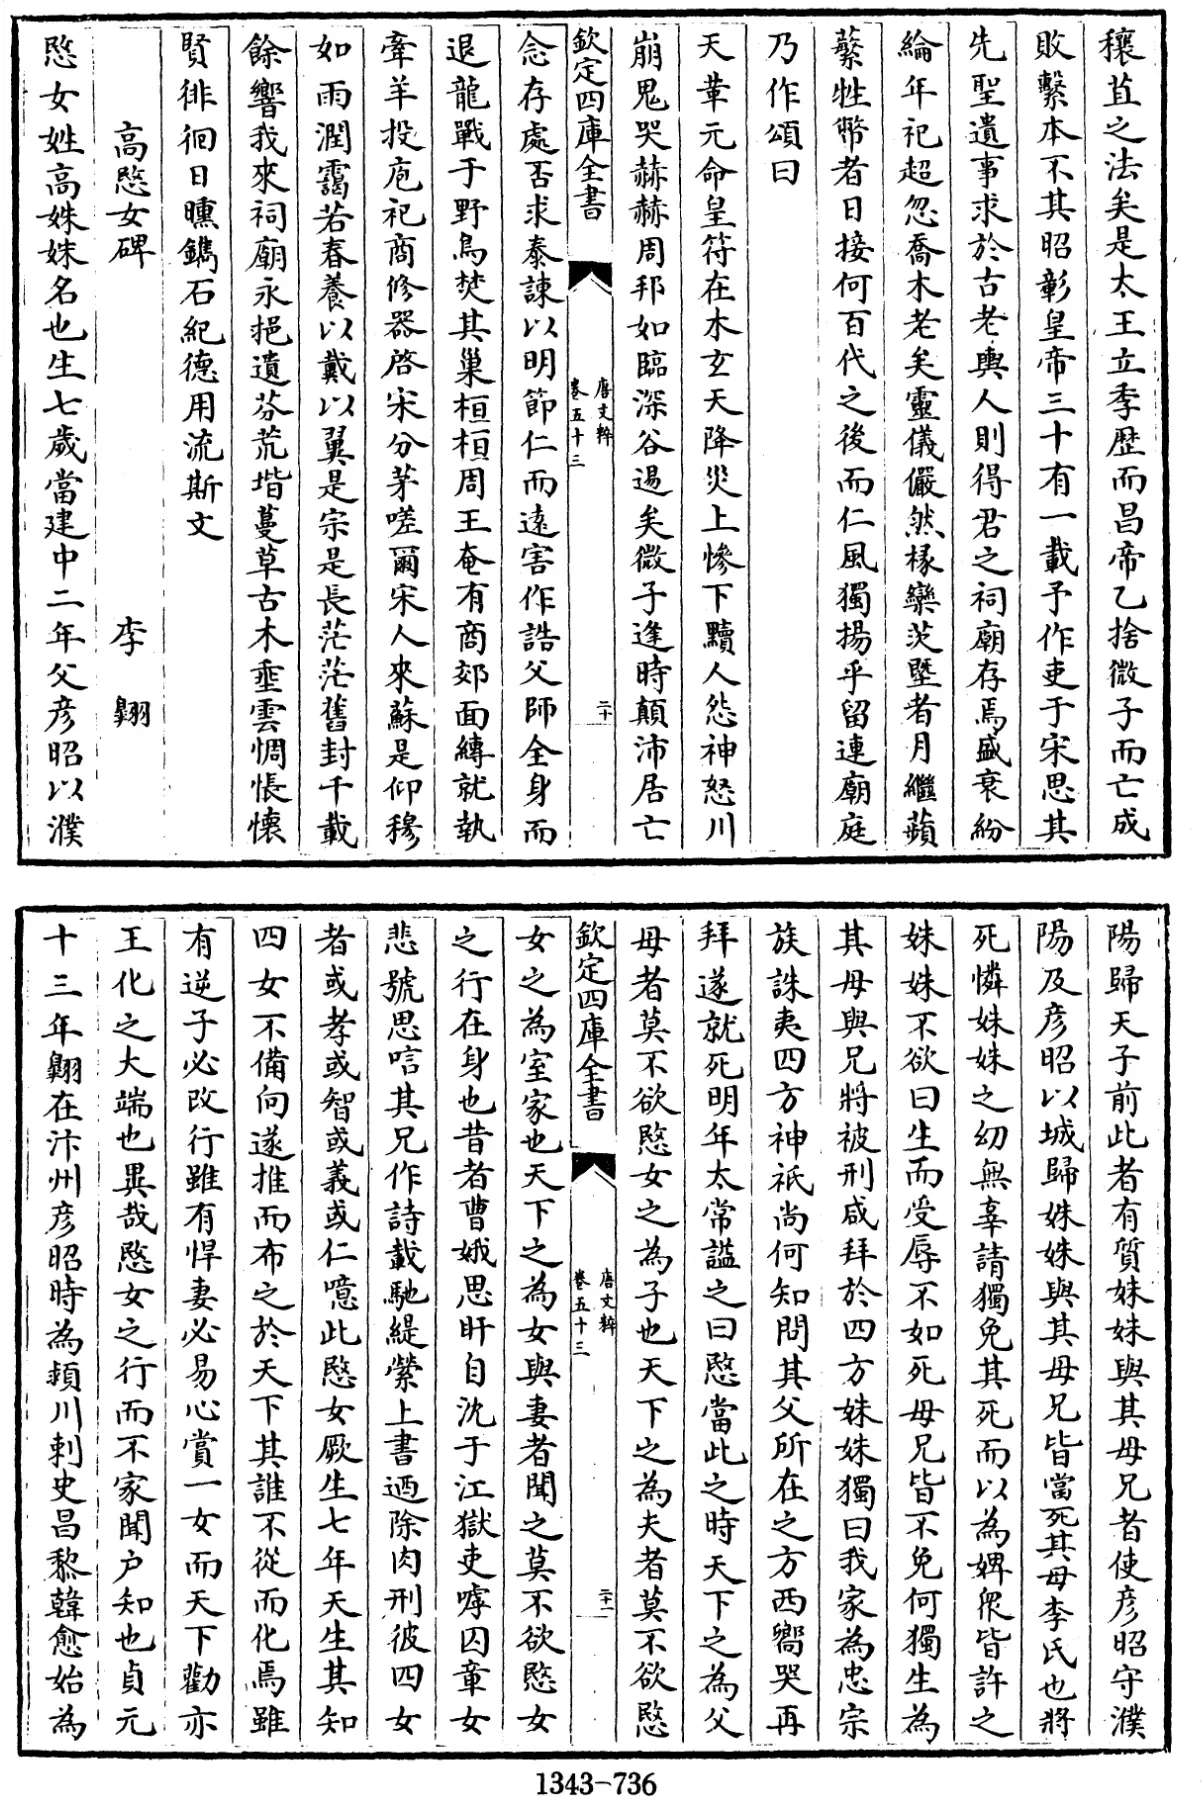 穰苴之法矣是太王立季歴而昌帝乙捨微子而亡成
敗繫本不其昭彰皇帝三十有一載予作吏于宋思其
先聖遺事求於古老輿人則得君之祠廟存焉盛衰紛
綸年祀超忽喬木老矣靈儀儼然椽欒茨塈者月繼蘋
蘩牲幣者日接何百代之後而仁風獨揚乎留連廟庭
乃作頌曰
天革元命皇符在木玄天降災上慘下黷人怨神怒川
崩鬼哭赫赫周邦如臨深谷逷矣微子逢時顛沛居亡
欽定四庫全書
唐文粹
卷五十三
二十
念存處否求泰諫以明節仁而遠害作誥父師全身而
退龍戰于野鳥焚其巢桓桓周王奄有商郊面縛就執
牽羊投庖祀商修器啓宋分茅嗟爾宋人來蘇是仰穆
如雨潤靄若春養以戴以翼是宗是長茫茫舊封千載
餘響我來祠廟永挹遺芬荒堦蔓草古木垂雲惆悵懷
賢徘徊日曛鐫石紀德用流斯文
高愍女碑 李翺
愍女姓高妹妹名也生七歲當建中二年父彦昭以濮
陽歸天子前此者有質妹妹與其母兄者使彦昭守濮
陽及彦昭以城歸妹妹與其母兄皆當死其母李氏也將
死憐妹妹之幼無辜請獨免其死而以為婢衆皆許之
妹妹不欲曰生而受辱不如死母兄皆不免何獨生為
其母與兄將被刑咸拜於四方妹妹獨曰我家為忠宗
族誅夷四方神祇尚何知問其父所在之方西嚮哭再
拜遂就死明年太常謚之曰愍當此之時天下之為父
母者莫不欲愍女之為子也天下之為夫者莫不欲愍
欽定四庫全書
唐文粹
卷五十三
二十一
女之為室家也天下之為女與妻者聞之莫不欲愍女
之行在身也昔者曹娥思盱自沈于江獄吏嘑囚章女
悲號思唁其兄作詩載馳緹縈上書迺除肉刑彼四女
者或孝或智或義或仁噫此愍女厥生七年天生其知
四女不備向遂推而布之於天下其誰不從而化焉雖
有逆子必改行雖有悍妻必易心賞一女而天下勸亦
王化之大端也異哉愍女之行而不家聞户知也貞元
十三年翺在汴州彦昭時為頴川刺史昌黎韓愈始為
1343-736